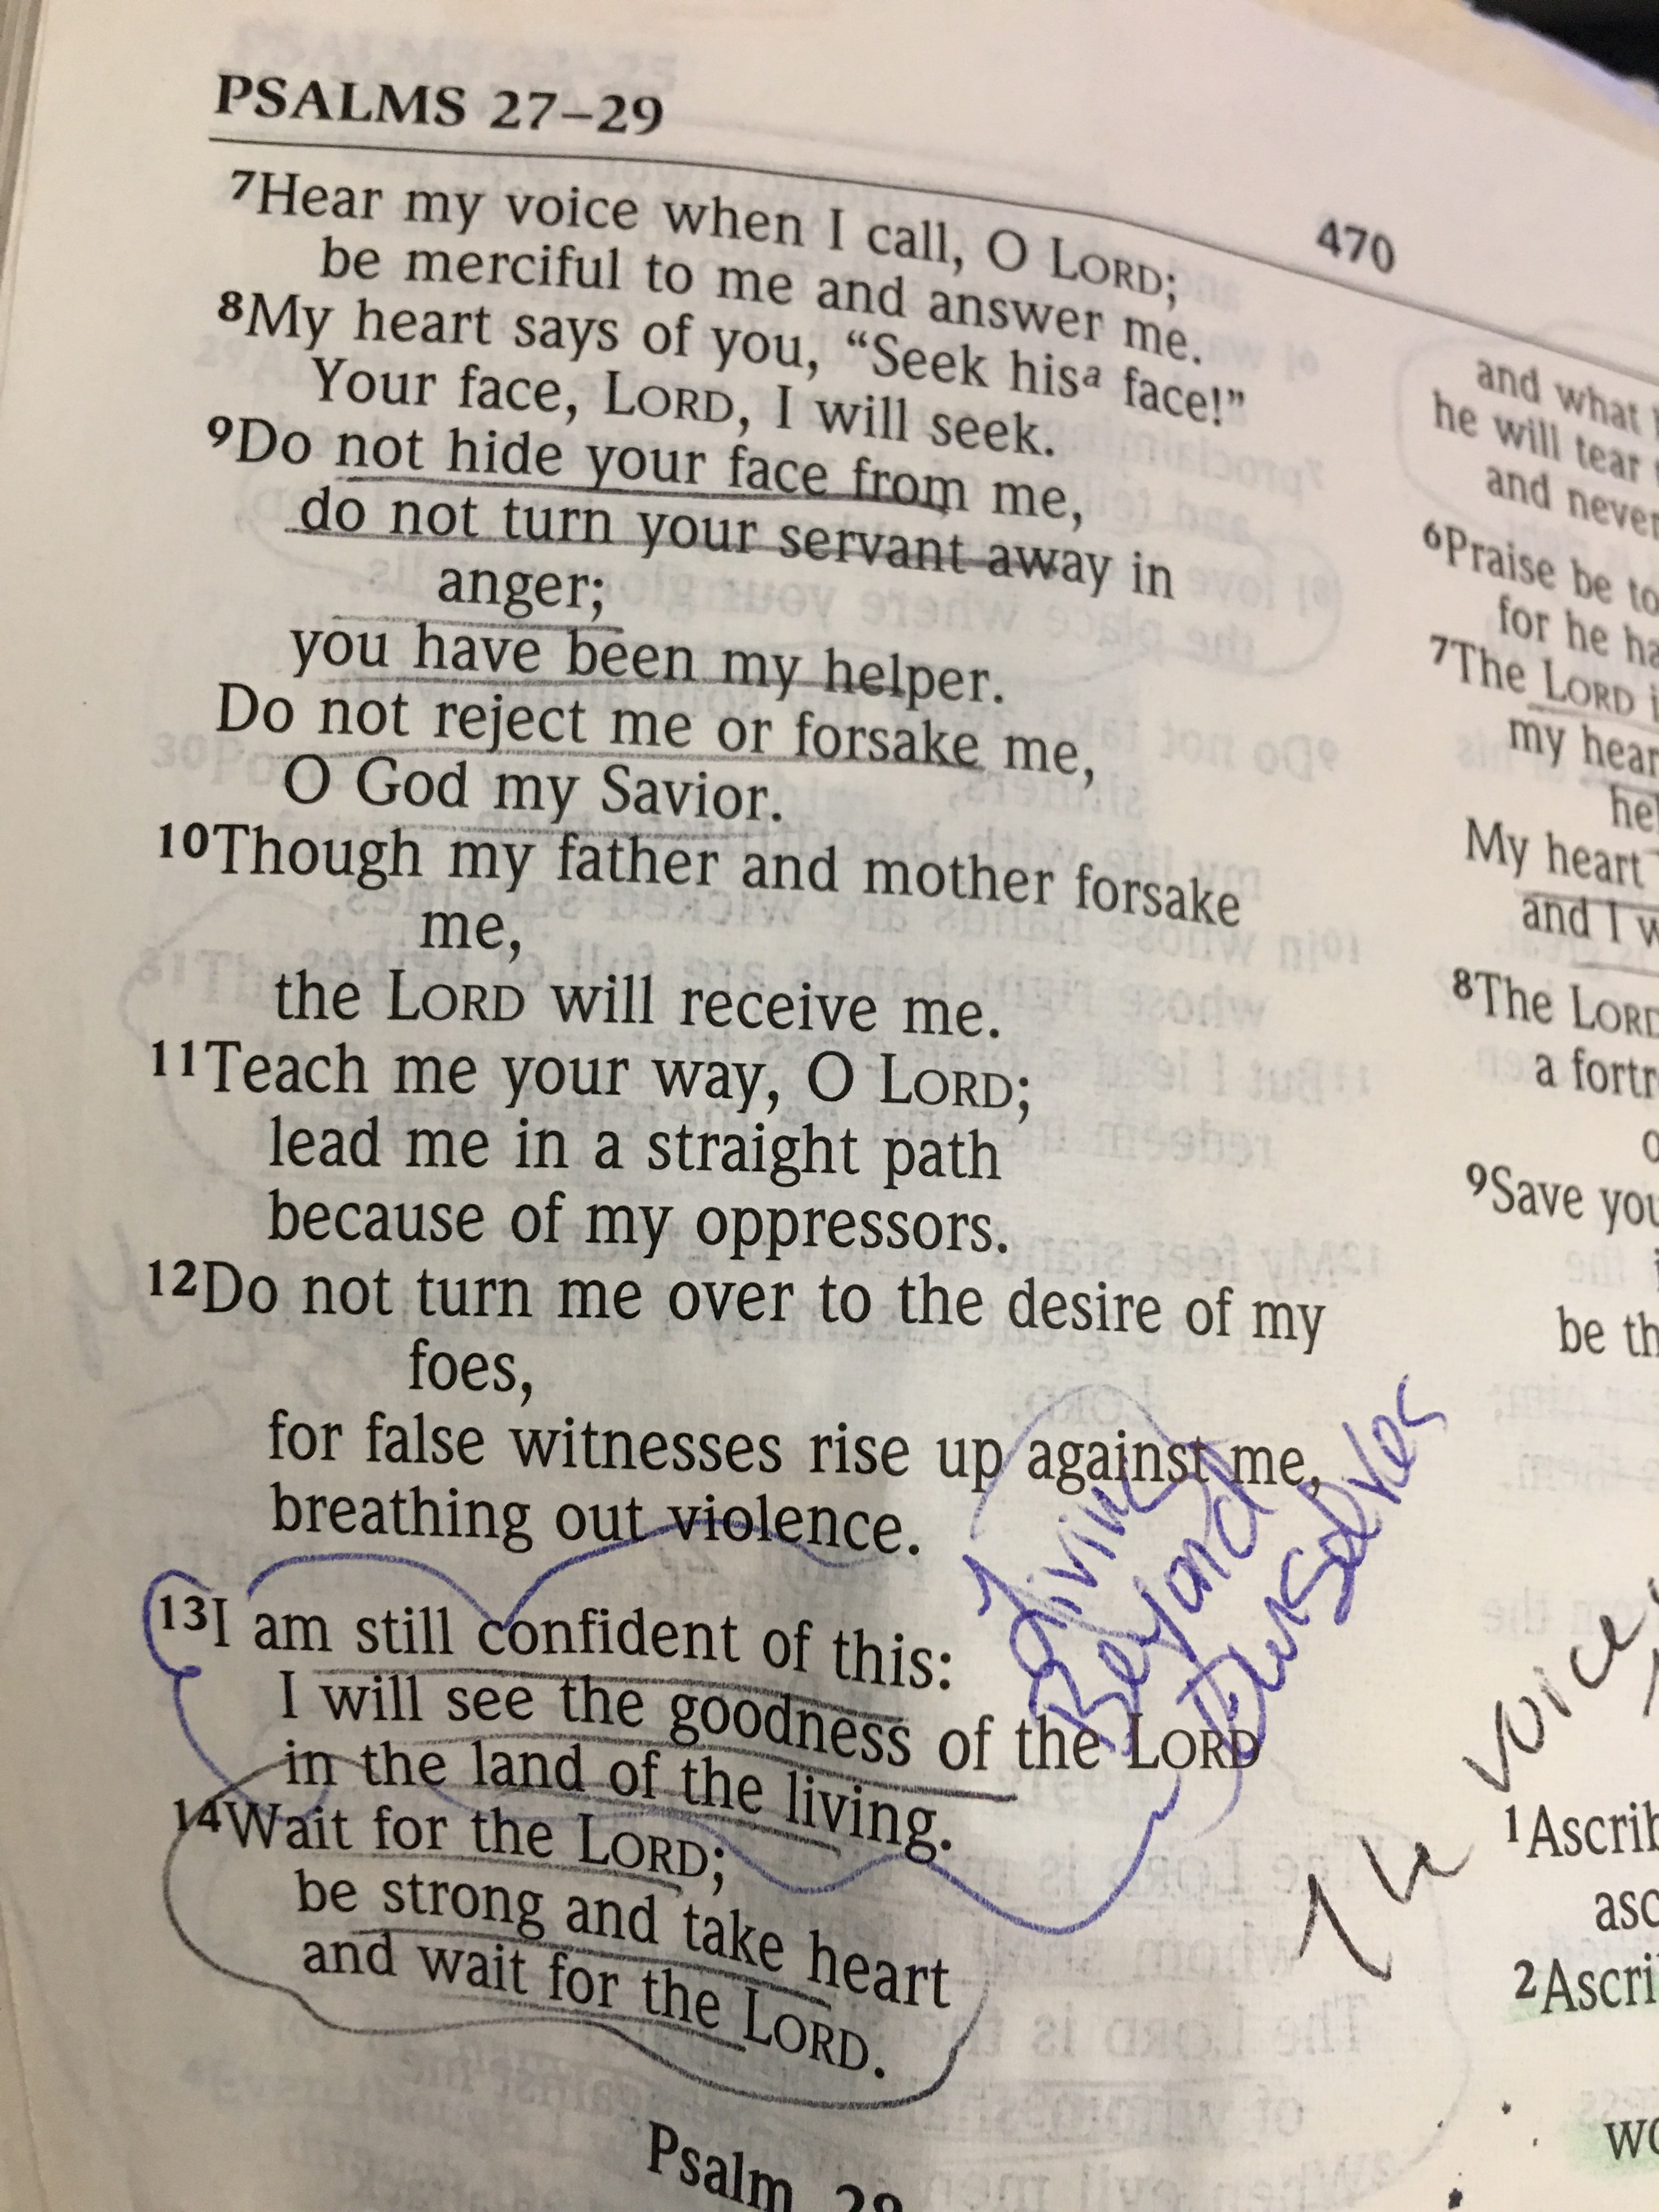 PSALMS 27–29
470
7Hear my voice when I call, O LORD;
be merciful to me and answer me.
8My heart says of you, “Seek hisa face!”
Your face, LORD, I will seek.
9Do not hide your face from me,
do not turn your servant away in
anger;
you have been my helper.
Do not reject me or forsake me,
O God my Savior.
10Though my father and mother forsake
me,
the LORD will receive me.
11Teach me your way, O LORD;
lead me in a straight path
because of my oppressors.
12Do not turn me over to the desire of my
foes,
for false witnesses rise up against me,
breathing out violence.
13I am still confident of this:
I will see the goodness of the LORD
in the land of the living.
14Wait for the LORD;
be strong and take heart
and wait for the LORD.
Psalm
Living
Beyond
Ourselves
and what
he will tear
and never
6Praise be to
for he
7The LORD
my
My heart
and I
8The LORD
a
9Save
be
voice
1
2